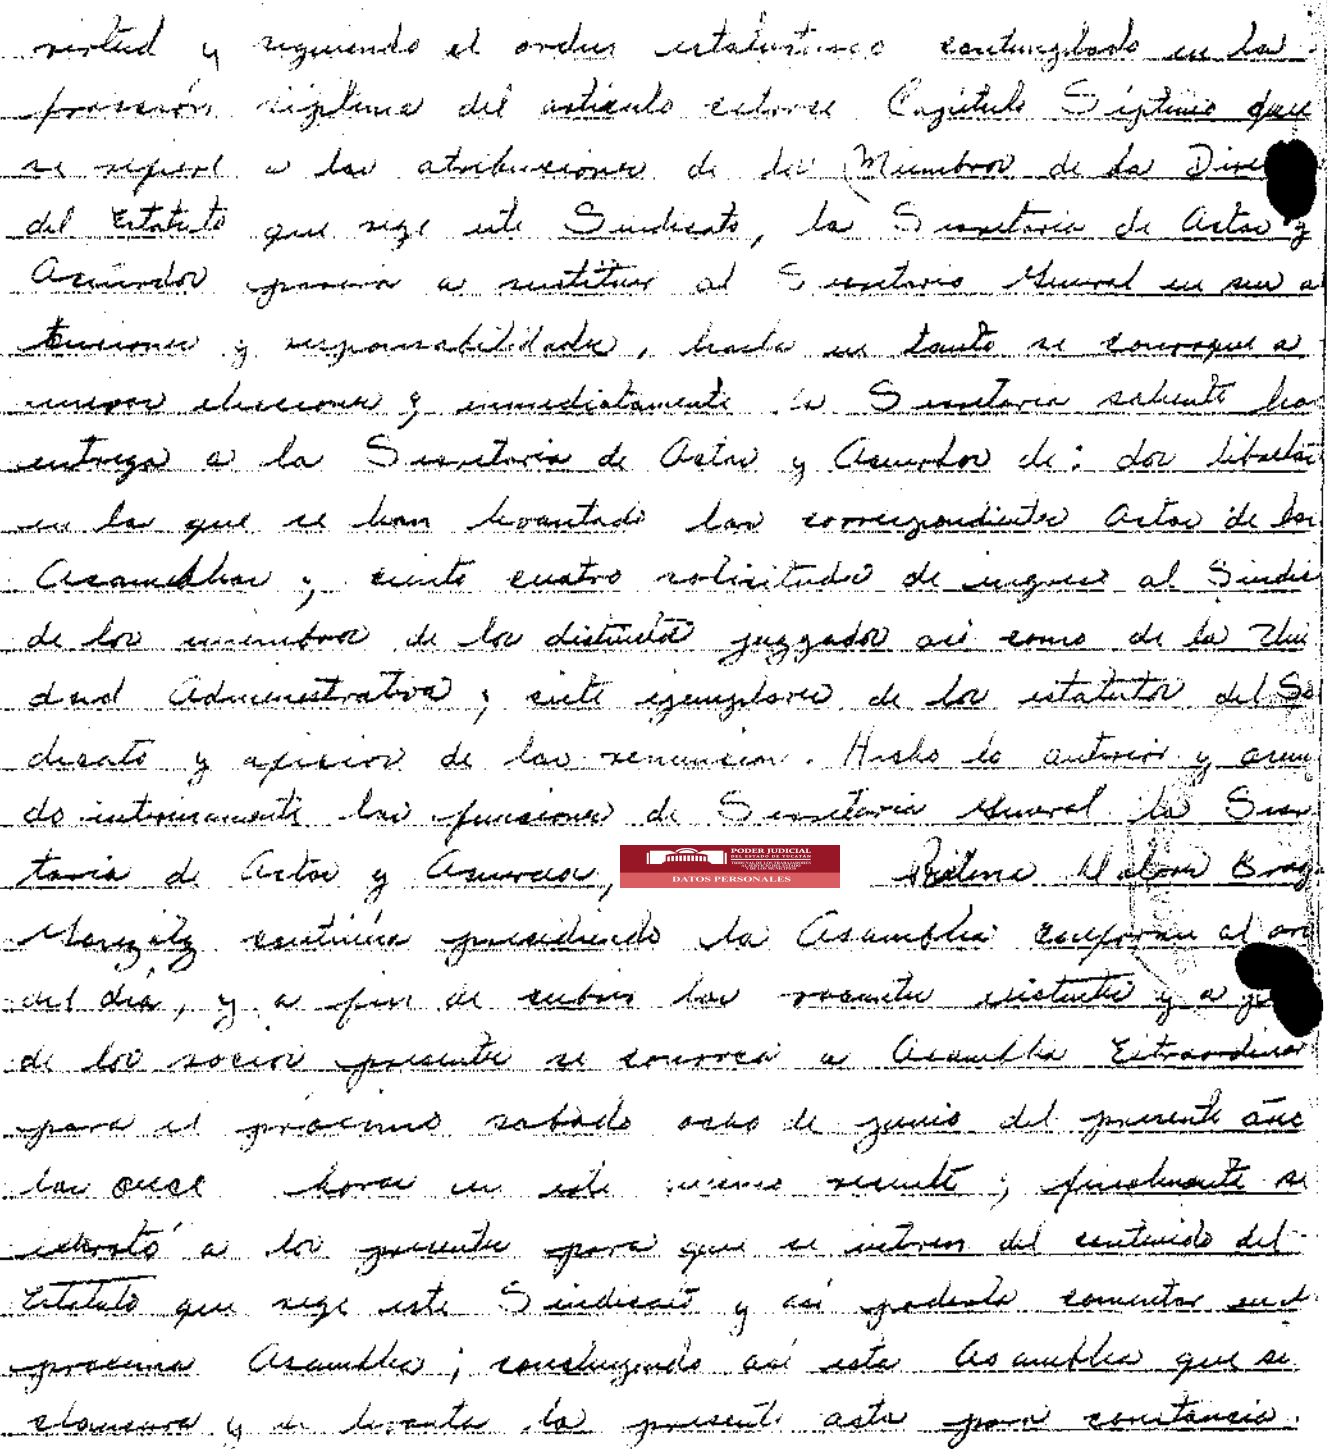 virtud y siguiendo el orden estatutario contemplado en la
fracción séptima del artículo catorce Capítulo Séptimo que
se refiere a las atribuciones de los Miembros de la Dire
del Estatuto que rige este Sindicato, la Secretaria de Actas y
Acuerdos pasará a sustituir al Secretario General en sus a
tenciones y responsabilidades, hasta en tanto se convoque a
nuevas elecciones y inmediatamente la Secretaria saliente hace
entrega a la Secretaria de Actas y Acuerdos de: dos libretas
en la que se han levantado las correspondientes Actas de las
Asambleas; ciento cuatro solicitudes de ingreso al Sindi
de los miembros de los distintos juzgados así como de la Uni
dad Administrativa; siete ejemplares de los estatutos del Sin
dicato y oficios de las renuncias. Hecho lo anterior y asumi
do interinamente las funciones de Secretaria General la Secre
taria de Actas y Acuerdos,
PODER JUDICIAL
DEL ESTADO DE YUCATÁN
DATOS PERSONALES
continúa presidiendo la Asamblea conforme al ord
del día, y a fin de cubrir las vacantes existentes y a
de los socios presentes se convoca a Asamblea Extraordinar
para el próximo sabado ocho de junio del presente año
las once horas en este mismo recinto; finalmente se
exhortó a los presentes para que se enteren del contenido del
Estatuto que rige este Sindicato y así poderlo comentar en el
proxima Asamblea; concluyendo así esta Asamblea que se
clausura y se levanta la presente acta para constancia.